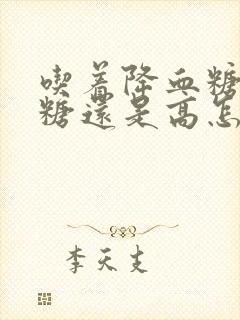 喫着降血糖
糖還是高怎
李天支